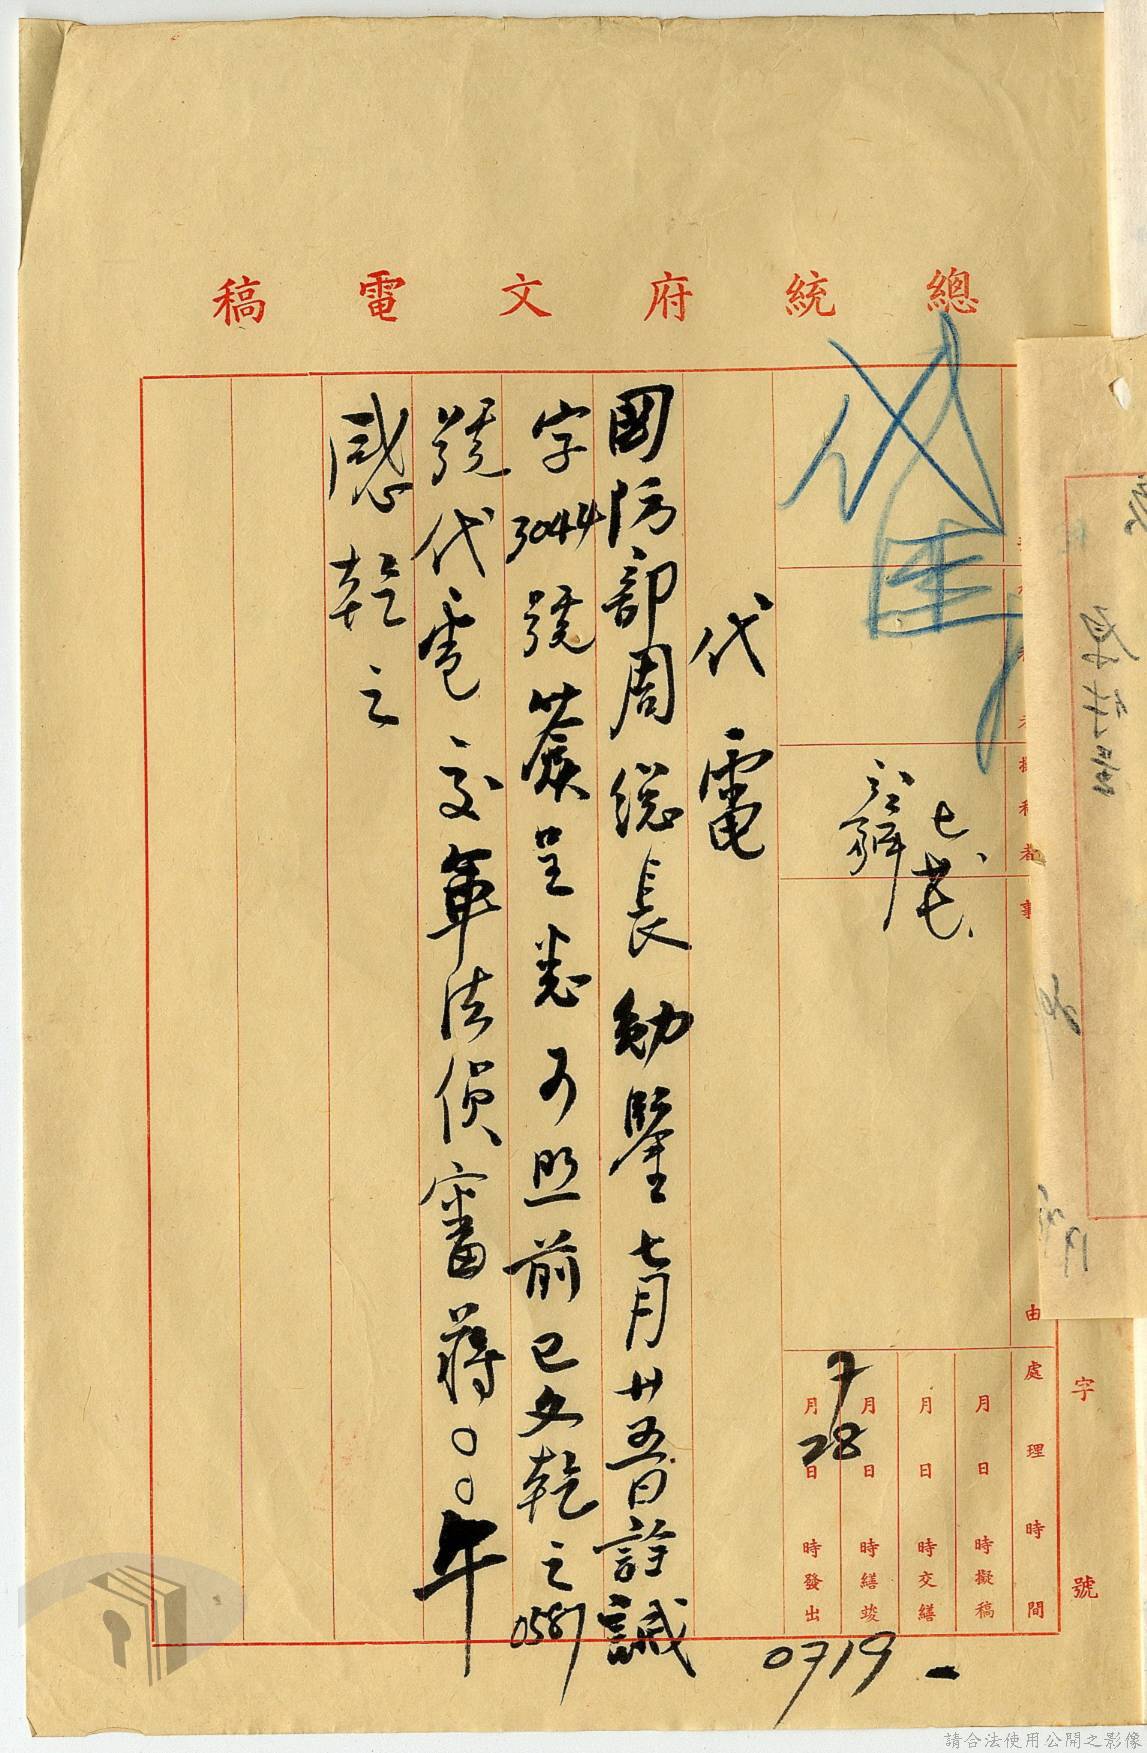 總統府文電稿
代電
國防部周總長勛鑒七月廿五日詮誠
字3044號簽呈悉可照前已文乾之0587
號代電交軍法偵審蔣○○午
感乾之
七、廿七、
事
由
處理時間
月日時擬稿
月日時交繕
月日時繕竣
月日時發出
7
28
字號
0719
請合法使用公開之影像